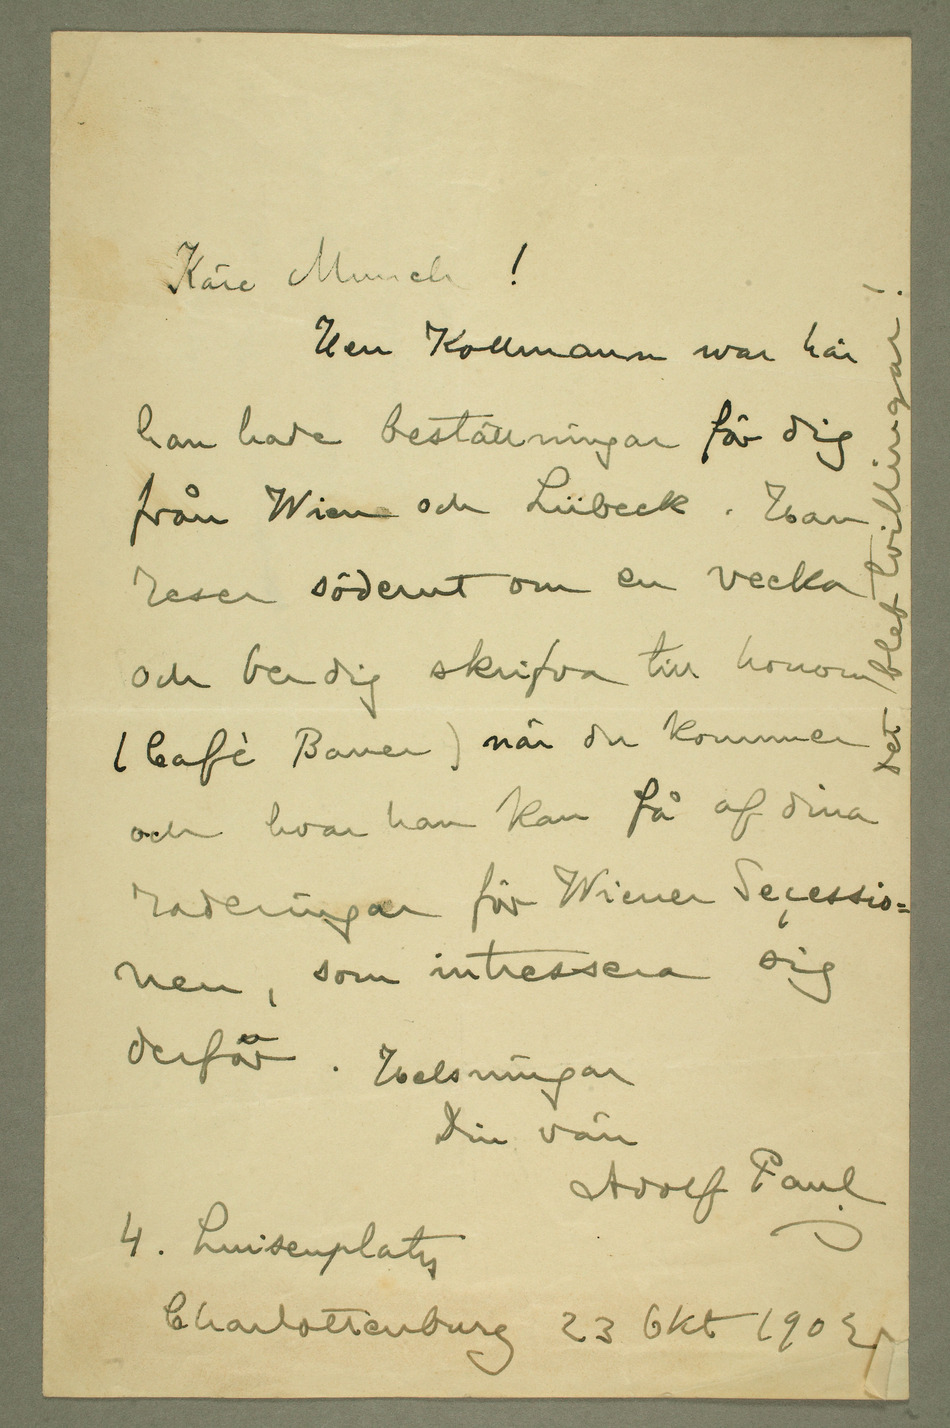 Käre Munch !
Herr Kollmann var här
han hade beställningar för dig
från Wien och Lübeck . Han
reser söderut om en vecka
och ber dig skrifva till honom
( Café Bauer ) när du kommer
och hvar han kan få af dina
raderingar för Wiener Seçessio=
nen , som intressera sig
derför . Helsningar
Din vän
Adolf Paul
4 . Luisenplatz
Charlottenburg 23 Okt 1902
Det blef tvillingar !